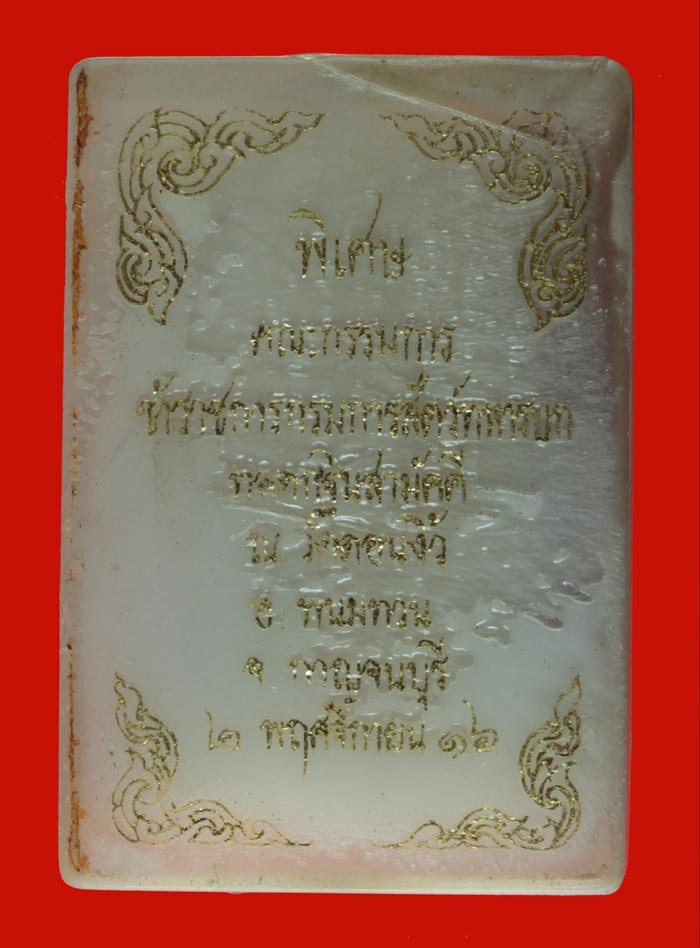 พิเศษ
คณะกรรมการ
ข้าราชการกรมการสัตว์ทหารบก
ทอดกฐินสามัคคี
ณ วัดดอนงิ้ว
อ. พนมทวน
จ. กาญจนบุรี
๒ พฤศจิกายน ๑๖